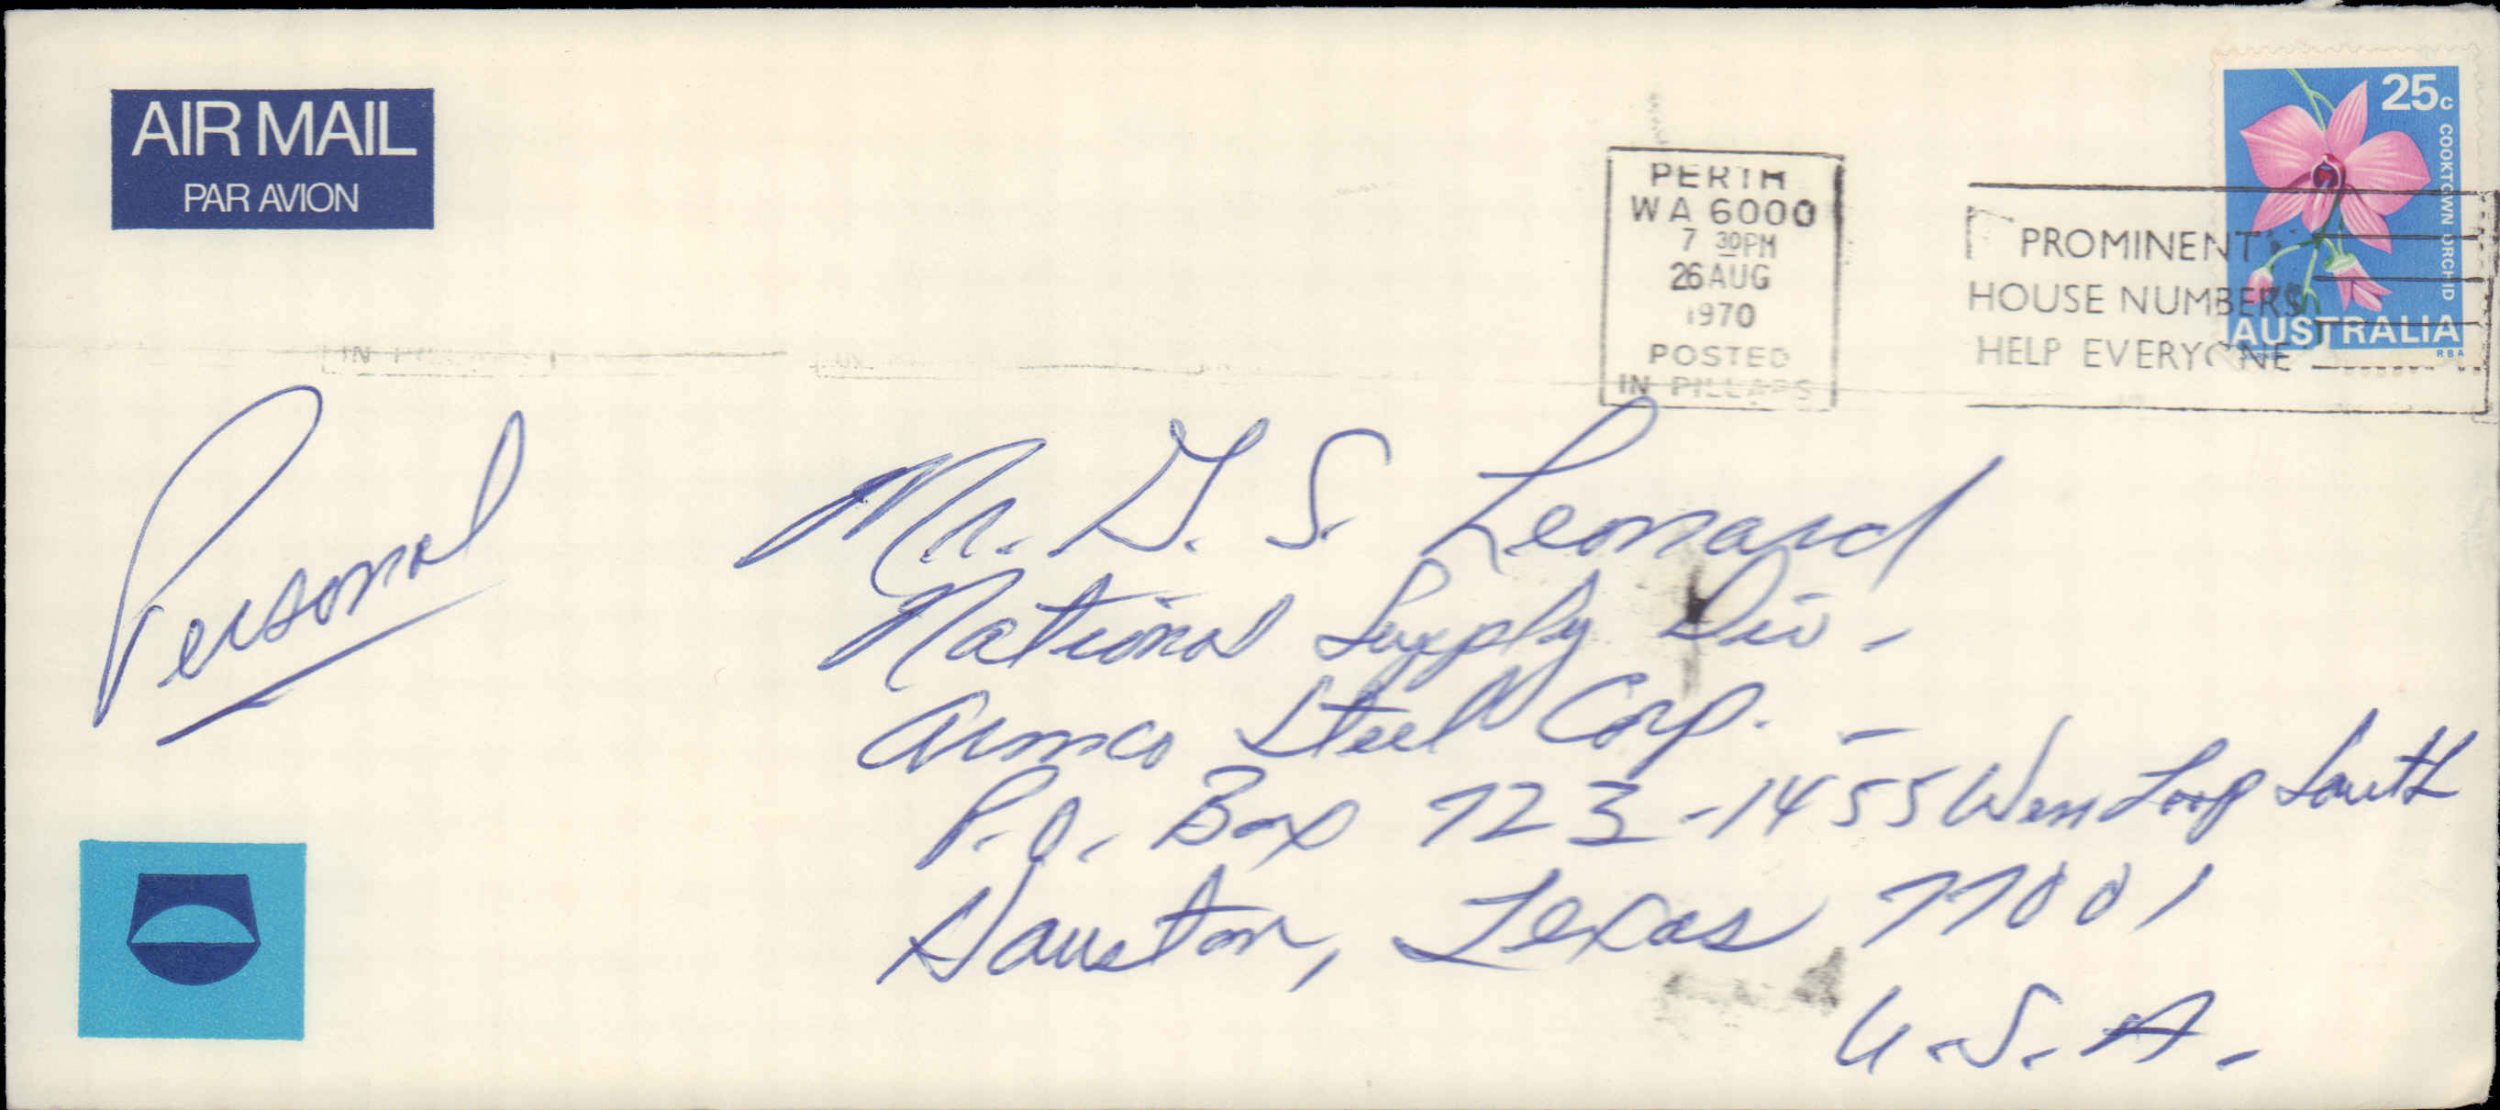 AIR MAIL
PAR AVION
PERTH
WA 6000
7 30PM
26 AUG
1970
POSTED
IN PILLARS
PROMINENT
HOUSE NUMBERS
HELP EVERYONE
25c
COOKTOWN ORCHID
AUSTRALIA
RBA
Personal
Mr. G. S. Leonard
National Supply Div.
Armco Steel Corp. -
P.O. Box 723 - 1455 West Loop South
Houston, Texas 77001
U.S.A.